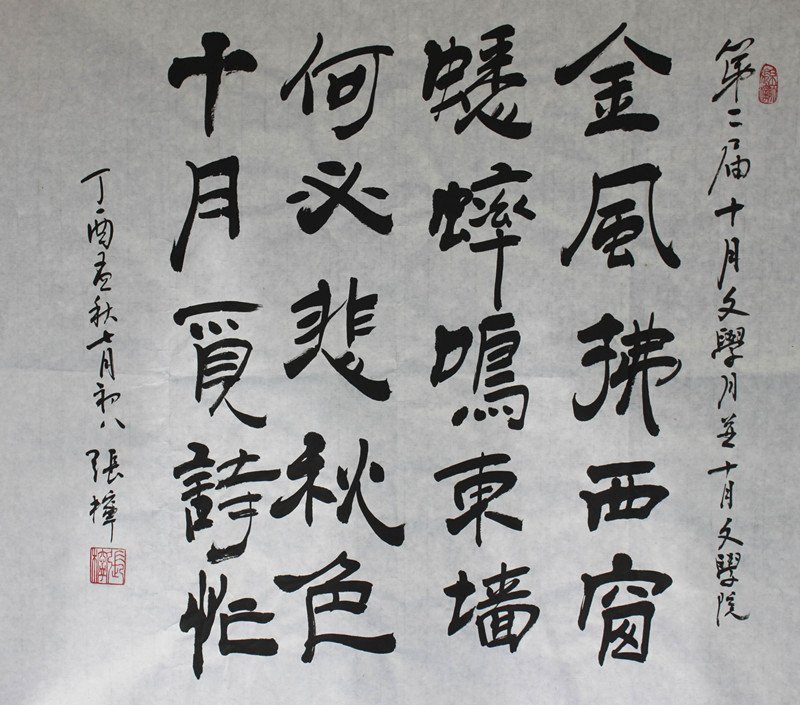 第二届十月文學月並十月文學院
金風拂西窗
蟋蟀鳴東墙
何必悲秋色
十月覓詩忙
丁酉孟秋七月初八 張樟